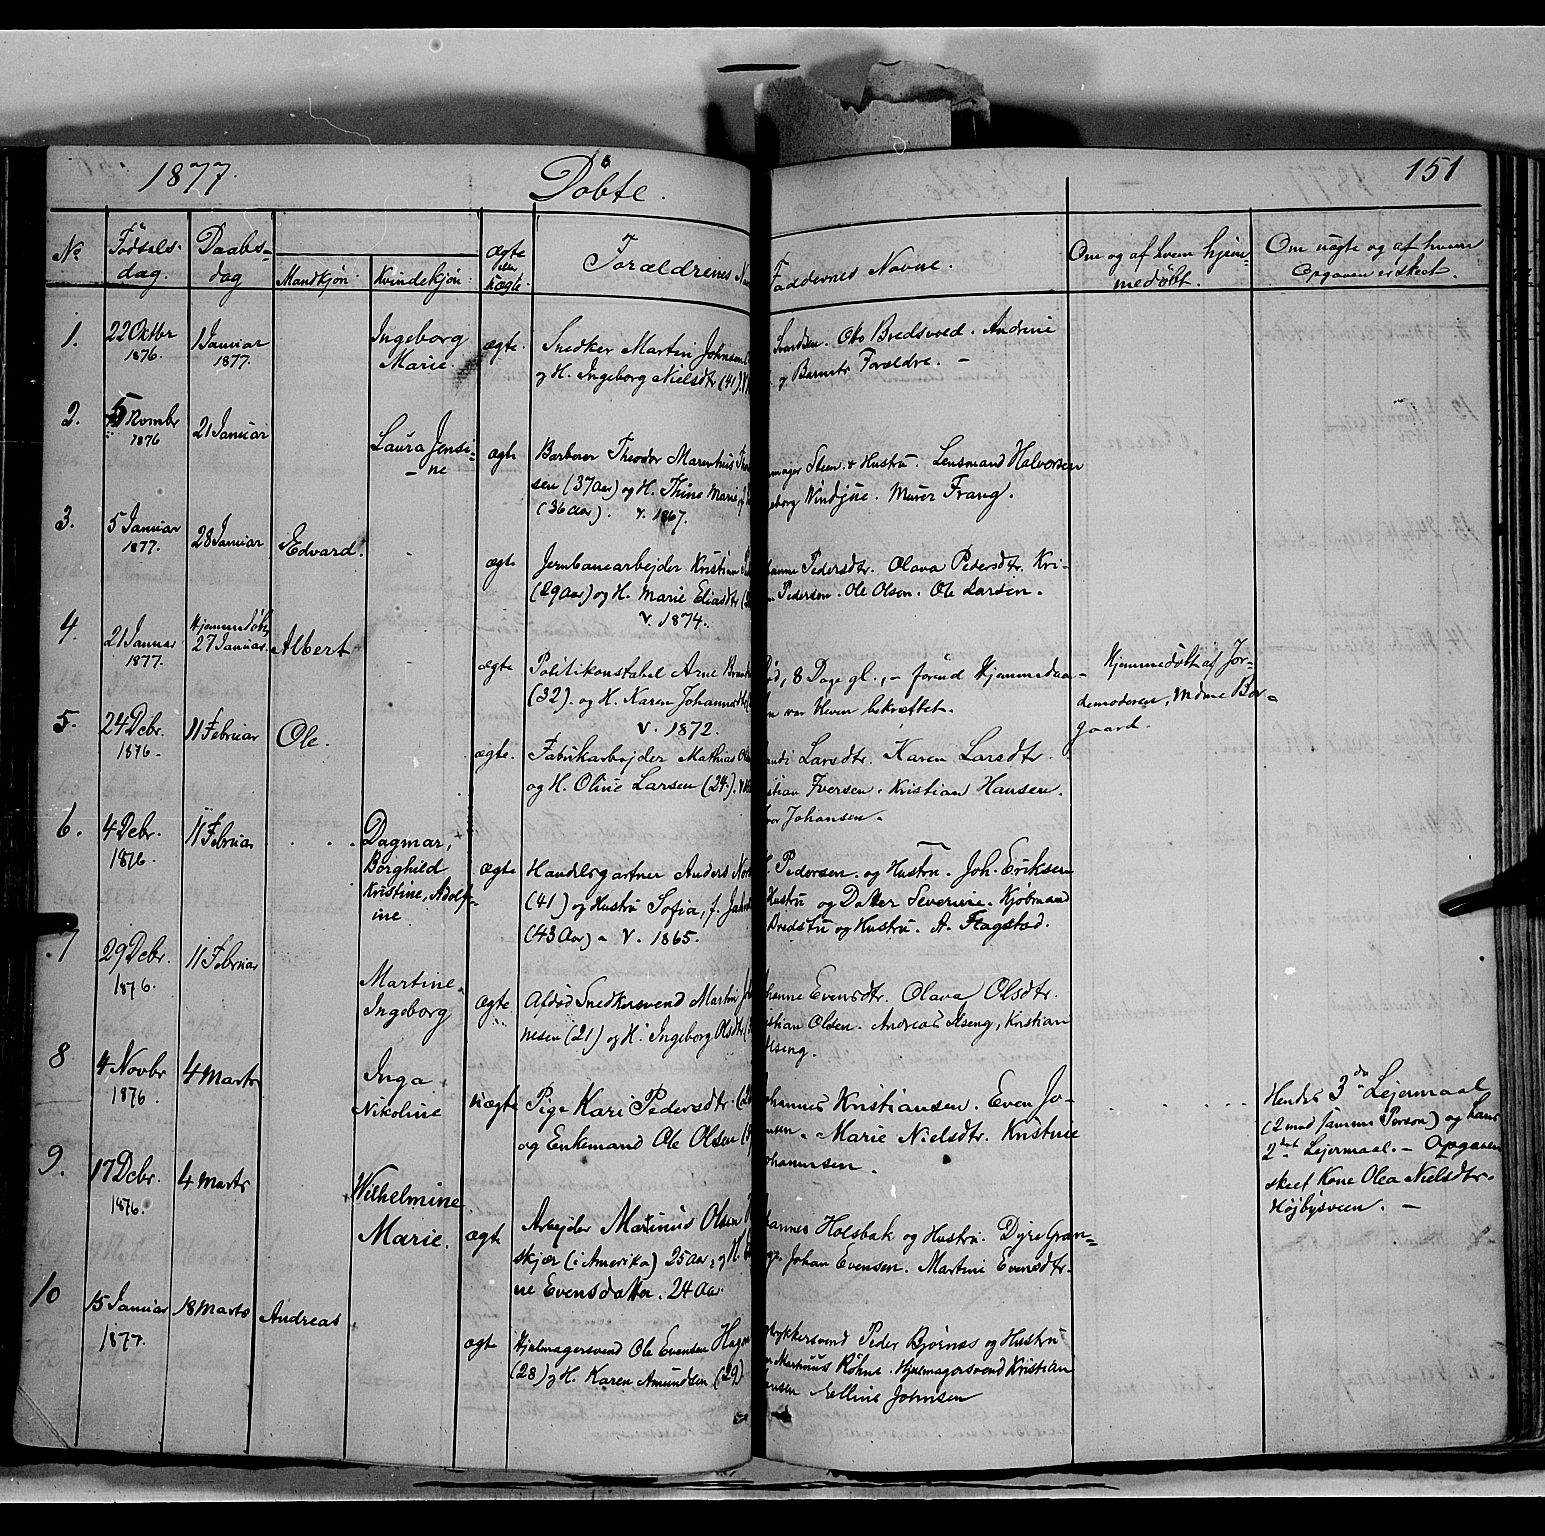 1877.
Døbte.
151
No
Fødsels-
dag.
Daabs-
dag
Mandkjøn
Kvindekjøn
ægte
eller
uægte
Forældrenes
Faddernes Navne.
Om og af hvem hjem-
medøbt.
Om uægte og af hvem
Opgaven er skeet.
1.
22 Octbr
1876.
1 Januar
1877.
Ingeborg
Marie.
ægte.
Snedker Martin Johnsen
og H. Ingeborg Nielsdtr (41).
Svendsen. Oto Bredsved. Andrine
og Barnets Forældre. –
2.
5 Novmbr
1876
21 Januar
Laura Jensi-
ne
ægte
Barberer Theodor Marenthius
sen (37 Aar) og H. Thine Marie
(36 aar). v. 1867.
mager Steen & Hustru. Lensmand Halvorsen
Vindjue. Murer Frang.
3.
5 Januar
1877.
28 Januar
Edvard.
ægte
Jernbanearbejder Kristian
(29 Aar) og H. Marie Eliasdtr
v. 1874.
Pedersdtr. Olava Pedersdtr. Kri-
Pedersen. Ole Olsen. Ole Larsen.
4.
21 Januar
1877.
Hjemmedøbt
27 Januar.
Albert
ægte
Politikonstabel Arne
(32). og H. Karen Johannesdtr
v. 1872.
8 Dage gl., – forend Hjemmedaa-
en var bleven bekræftet.
Hjemmedøbt af Jor-
demoderen, Mdme Bor-
gaard.
5.
24 Debr.
1876.
11 Februar
Ole.
ægte.
Fabrikarbejder Mathias
og H. Oline Larsen (24).
Larsdtr. Karen Larsdtr.
Iversen. Kristian Hansen.
Johansen.
6.
4 Debr.
1876.
11 Februar
Dagmar,
Borghild
Kristine, Adolf-
ine
ægte
Handelsgartner Anders
(41) og Hustru Sofia, f.
(43 Aar) – v. 1865.
Pedersen. og Hustru. Joh. Eriksen
Hustru og Datter Severine. Kjøbmand
Bredstu og Hustru. A. Flagstad.
7
29 Debr.
1876.
11 Februar
Martine
Ingeborg
ægte
Afdød Snedkersvend Martin
nesen (21) og H. Ingeborg Olsdtr
Evensdtr. Olava Olsdtr.
Olsen. Andreas Ilseng, Kristian
Ilseng.
8
4 Novbr
1876.
4 Marts
Inga
Nikoline
uægte
Pige Kari Pedersdtr.
og Enkemand Ole Olsen
Johannes Kristiansen. Even Jo-
Marie Nielsdtr. Kristine
Johannesen.
Hendes 3die Lejermaal
(2 med samme Person) og hans
2det Lejermaal. – Opgaven
skeet Kone Olea Nielsdtr.
Højbysveen. –
9.
17 Debr.
1876.
4 Marts
Wilhelmine
Marie.
ægte
Arbejder Martinus Olsen
skjær (i Amerika) 25 Aar, og H.
ne Evensdatter. 24 Aar.
Holsbak og Hustru. Dyre Gran-
Johan Evensen. Martine Evensdtr.
10
15 Januar
1877.
18 Marts
Andreas
ægte
Hjulmagersvend Ole Evensen
(28) og H. Karen Amundsen (29)
Trykkersvend Peder Bjørnæs og Hustru
Marthinus Røhne. Hjulmagersvend Kristian
Elline Johnsen